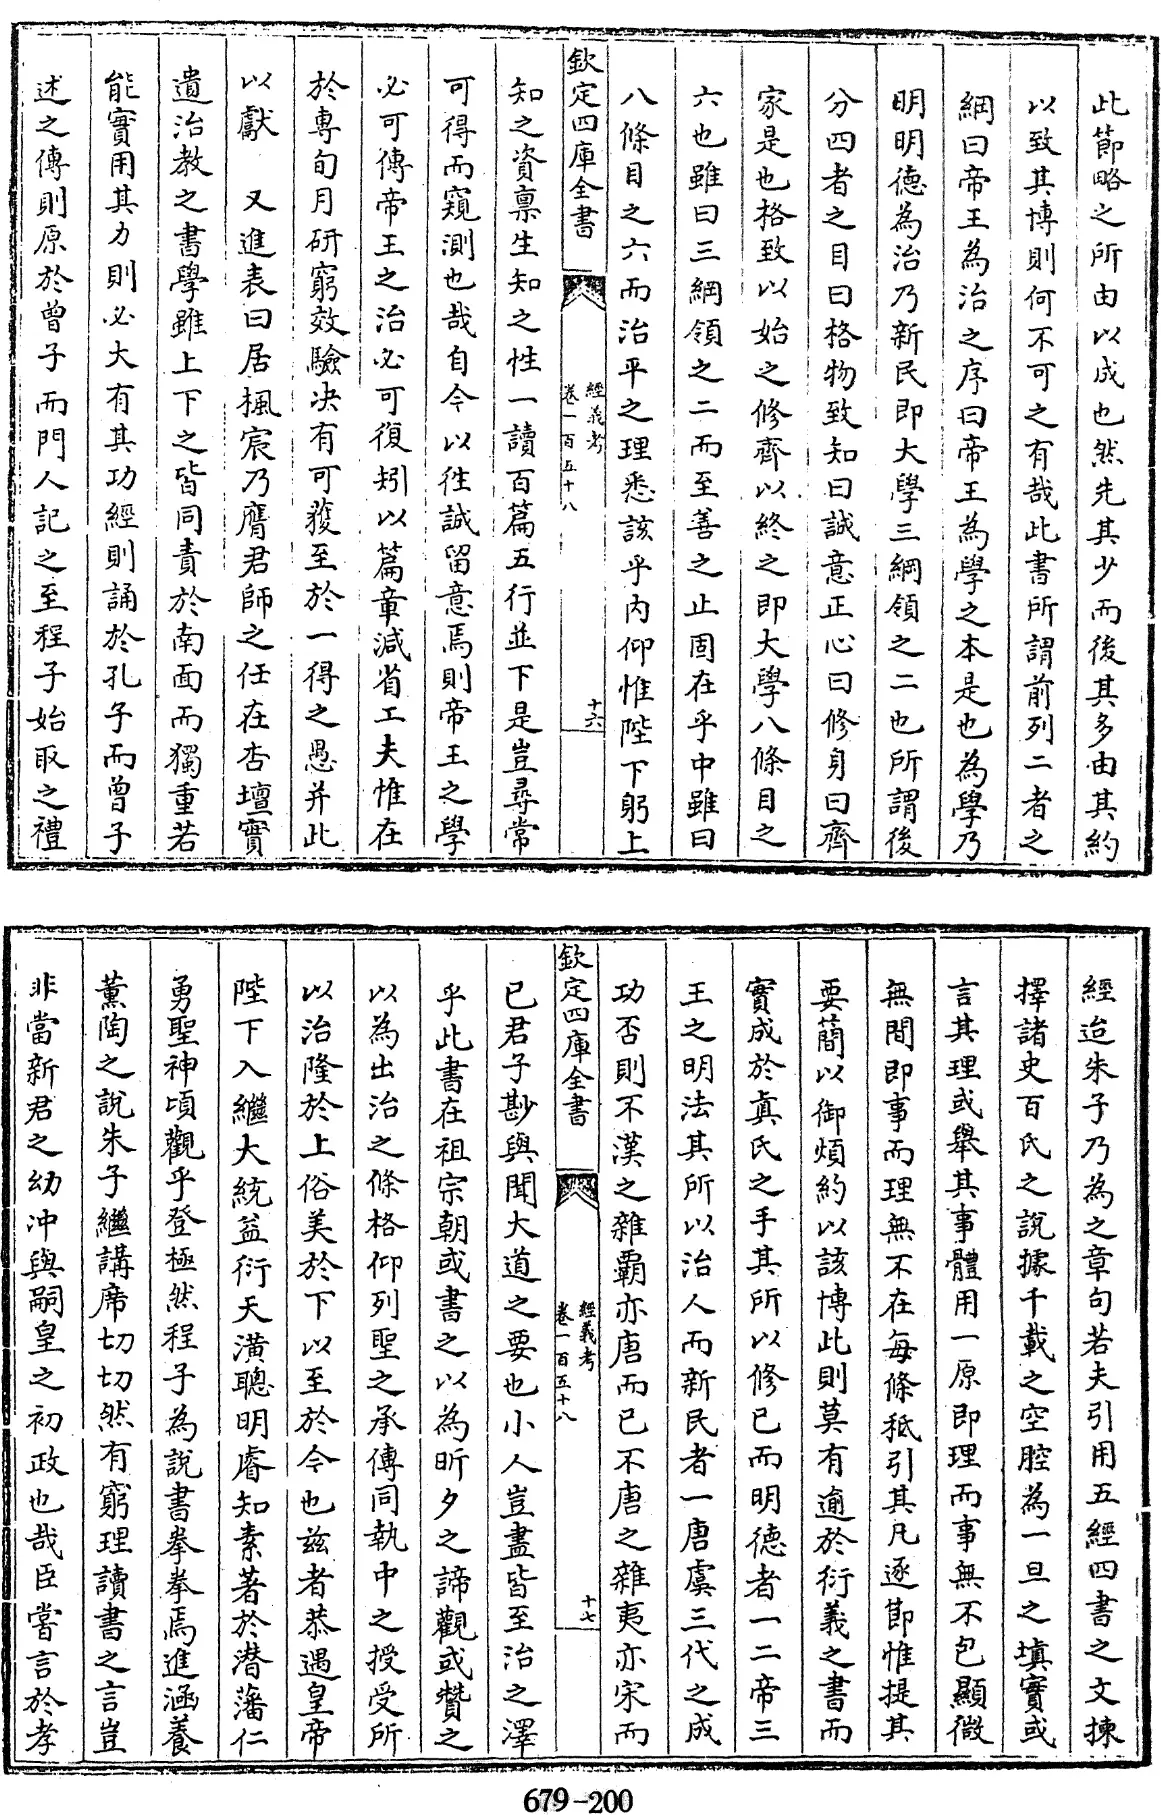 此節略之所由以成也然先其少而後其多由其約
以致其博則何不可之有哉此書所謂前列二者之
綱曰帝王為治之序曰帝王為學之本是也為學乃
明明德為治乃新民即大學三綱領之二也所謂後
分四者之目曰格物致知曰誠意正心曰修身曰齊
家是也格致以始之修齊以終之即大學八條目之
六也雖曰三綱領之二而至善之止固在乎中雖曰
八條目之六而治平之理悉該乎内仰惟陛下躬上
欽定四庫全書
經義考
卷一百五十八
十六
知之資禀生知之性一讀百篇五行並下是豈尋常
可得而窺測也哉自今以徃誠留意焉則帝王之學
必可傳帝王之治必可復矧以篇章減省工夫惟在
於專旬月研窮效驗决有可獲至於一得之愚并此
以獻　又進表曰居楓宸乃膺君師之任在杏壇實
遺治教之書學雖上下之皆同責於南面而獨重若
能實用其力則必大有其功經則誦於孔子而曾子
述之傳則原於曾子而門人記之至程子始取之禮
經迨朱子乃為之章句若夫引用五經四書之文揀
擇諸史百氏之說據千載之空腔為一旦之填實或
言其理或舉其事體用一原即理而事無不包顯微
無間即事而理無不在每條秪引其凡逐節惟提其
要簡以御煩約以該博此則莫有逾於衍義之書而
實成於真氏之手其所以修已而明德者一二帝三
王之明法其所以治人而新民者一唐虞三代之成
功否則不漢之雜霸亦唐而已不唐之雜夷亦宋而
欽定四庫全書
經義考
卷一百五十八
十七
已君子尠與聞大道之要也小人豈盡皆至治之澤
乎此書在祖宗朝或書之以為昕夕之諦觀或贊之
以為出治之條格仰列聖之承傳同執中之授受所
以治隆於上俗美於下以至於今也兹者恭遇皇帝
陛下入繼大統益衍天潢聰明睿知素著於潜藩仁
勇聖神頃觀乎登極然程子為說書拳拳焉進涵養
薰陶之說朱子繼講席切切然有窮理讀書之言豈
非當新君之幼冲與嗣皇之初政也哉臣嘗言於孝
679-200